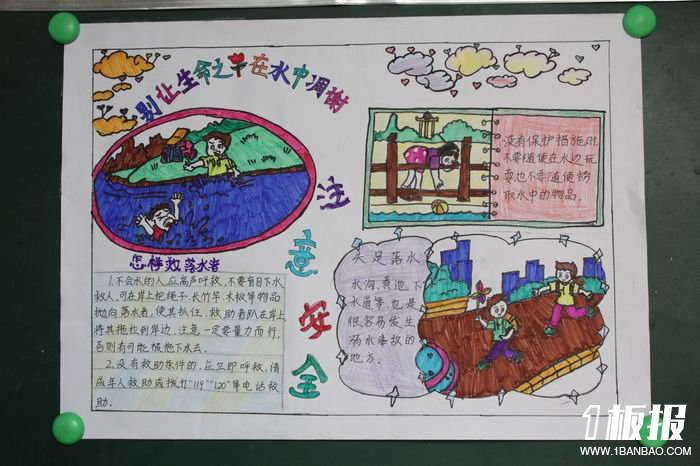 别让生命之花在水中凋谢
注意安全
怎样救落水者
1.不会水的人,应高声呼救,不要盲目下水
救人,可在岸上把绳子、长竹竿、木板等物品
抛向落水者,使其抓住,救助者趴在岸上
将其拖拉到岸边,注意一定要量力而行,
否则有可能被拖下水去。
2.没有救助条件的,应立即呼救,请
成年人救助或拨打“119”“120”等电话救
助。
没有保护措施时
不要随便在水边玩
耍也不要随便捞
取水中的物品。
失足落水
水沟、粪池、下
水道等,也是
很容易发生
溺水事故的
地方。
1板报
WWW.1BANBAO.COM